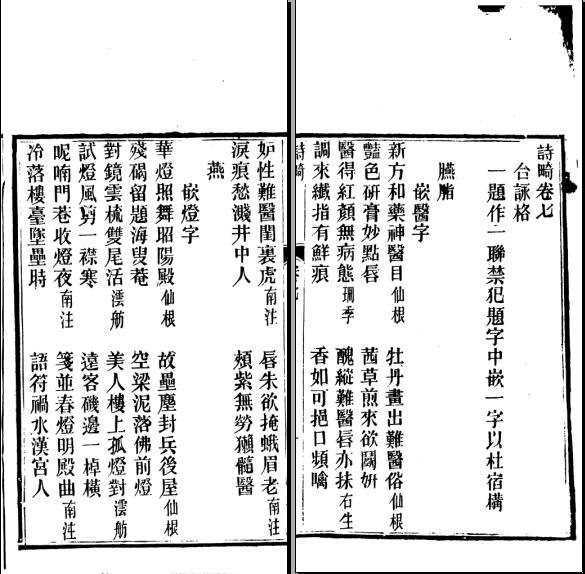 詩畸卷七
台詠格
一題作一聯禁犯題字中嵌一字以杜宿構
臙脂
嵌醫字
新方和藥神醫目仙根 牡丹畫出難醫俗仙根
豔色研膏妙點唇 茜草煎來欲鬭妍
醫得紅顏無病態珊季 醜縱難醫唇亦抹右生
調來纖指有鮮痕 香如可挹口頻噙
詩畸
妒性難醫閨裏虎南注 唇朱欲掩蛾眉老南注
淚痕愁濺井中人 頰紫無勞獺髓醫
燕
嵌燈字
華燈照舞昭陽殿仙根 故壘塵封兵後屋仙根
殘碣留題海叟菴 空梁泥落佛前燈
對鏡雲梳雙尾活澐舫 美人樓上孤燈對澐舫
試燈風剪一襟寒 遠客磯邊一棹橫
呢喃門巷收燈夜南注 箋並春燈明殿曲南注
冷落樓臺墜壘時 語符禍水漢宮人